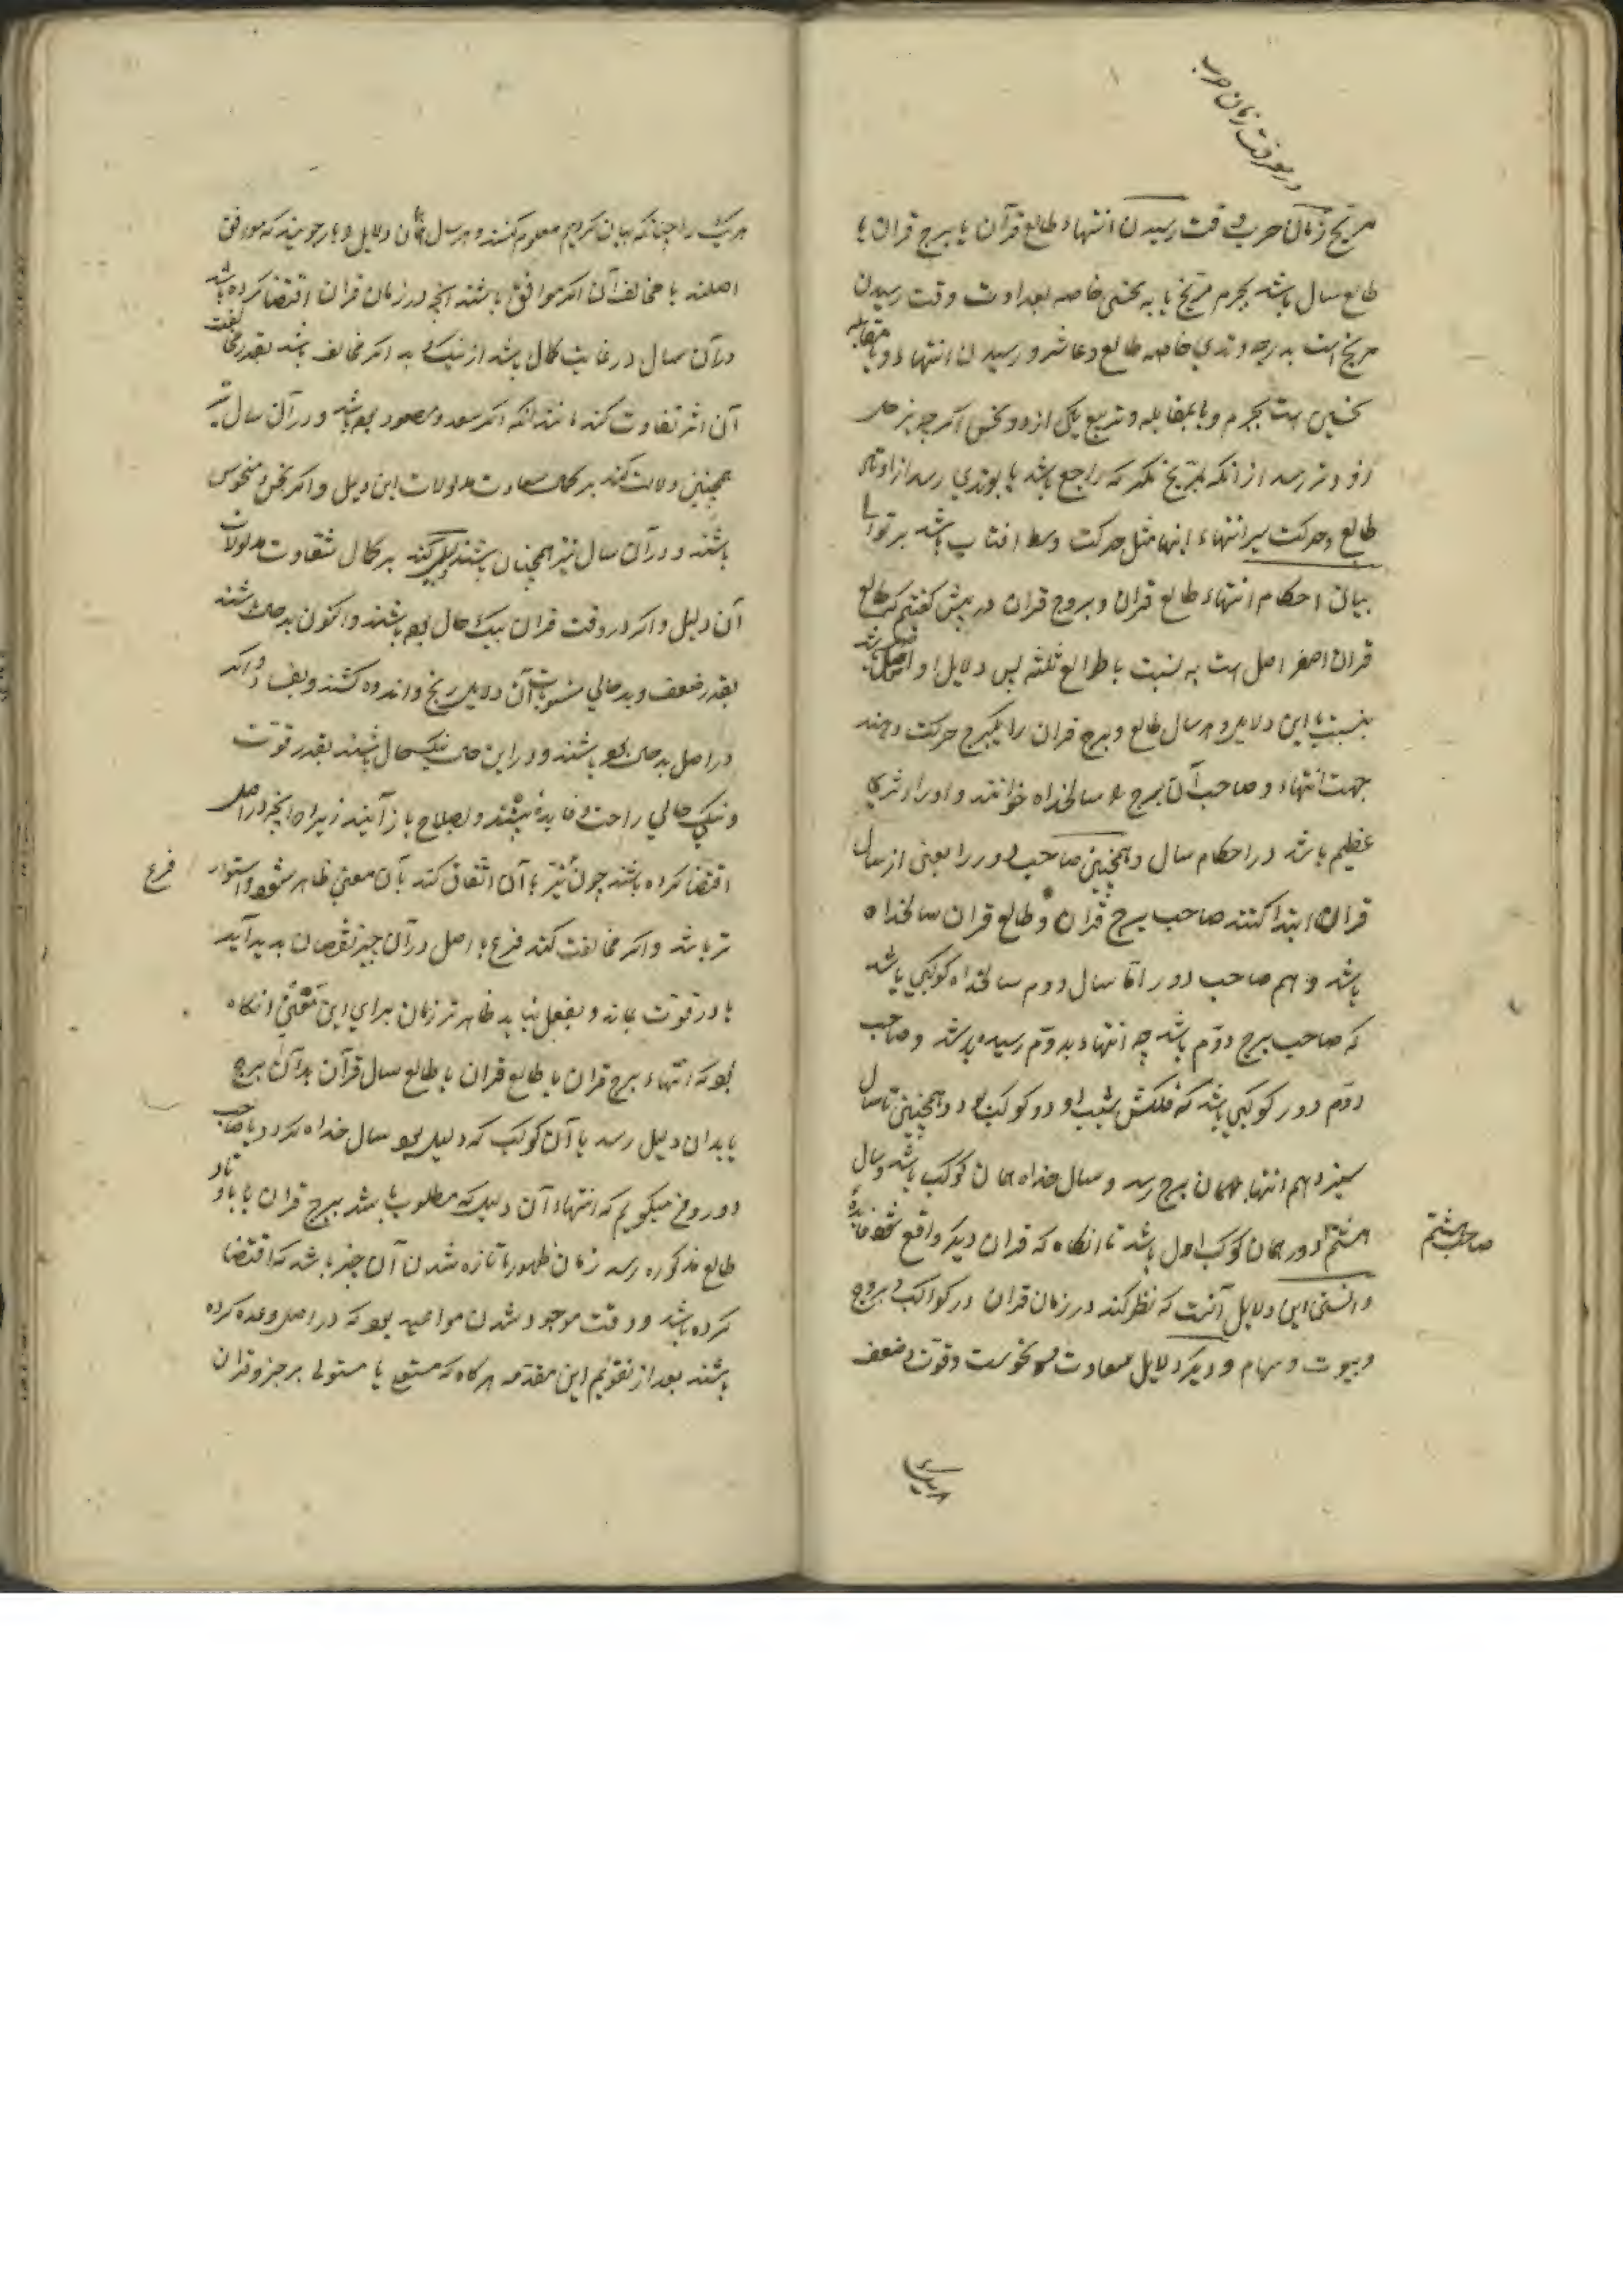 در معرفت زمان حرب
مریخ زمان حرب و قت رسیدن انتهاء طالع قرآن یا برج قران یا
طالع سال باشد بجرم مریخ یا به نحسی خاصه بعداوت وقت رسیدن
مریخ است بدرجه وتدی خاصه طالع و عاشر و رسیدن انتهاء و یا مقابله
نحسین است بجرم و یا بمقابله و تربیع یکی از دو نحس اکر چه بزحل
زودتر رسد از آنکه بمریخ مکر که راجع باشد یا بوتدی رسد از اوتاد
طالع و حرکت سیر انتهاء اینها مثل حرکت وسط افتاب باشد بر توالی
بیان احکام انتهاء طالع قران و بروج قران در پیش کفتیم که طالع
قران اصغر اصل است به نسبت با طوالع ثلثه پس دلایل او اصل باشد
بنسبت با این دلایل و هر سال طالع و برج قران را یکبرج حرکت دهند
جهت انتهاء و صاحب آن برج را سالخداه خوانند و او را اثری
عظیم باشد در احکام سال و همچنین صاحب دور را یعنی از سال
قران ابتدا کنند صاحب برج قران و طالع قران سالخداه
باشد و هم صاحب دور امّا سال دوم سالخداه کوکبی باشد
که صاحب برج دوّم باشد چه انتهاء بدوّم رسیده باشد و صاحب
دوّم دور کوکبی باشد که فلکش شیب او دو کوکب بود و همچنین تا سال
سیزدهم انتهاء بهمان برج رسد و سال خداه همان کوکب باشد و سال
هشتم دور همان کوکب اول باشد تا انکاه که قران دیکر واقع شود فایده
صاحب هشتم
دانستن این دلایل آنست که نظر کند در زمان قران در کواکب و بروج
و بیوت و سهام و دیکر دلایل سعادت و نحوست و قوت و ضعف
هر یک را چنانکه بیان کردیم معلوم کنند و هر سال همان دلایل را باز جویند که موافق
اصلند یا مخالف آن اکر موافق باشند انچه در زمان قران اقتضا کرده باشد
در آن سال در غایت کمال باشد از نیک و بد اکر مخالف باشد بقدر مخالفت
آن اثر تفاوت کند مانند انکه اکر سعد و مسعود بوده باشد و در آن سال نیز
همچنین دلالت کند بر کمال سعادت مدلولات این دلیل و اکر نحس و منحوس
باشند و در آن سال نیز همچنان باشند دلیل کند بر کمال شقاوت مدلولات
آن دلیل و اکر در وقت قران نیک حال بوده باشند و اکنون بد حال باشند
بقدر ضعف و بد حالی منسوبات آن دلایل رنج و اندوه کشند و بعد و اکر
در اصل بد حال بوده باشند و در این حال نیک حال باشند بقدر قوّت
و نیک حالی راحت و فایده بینند و بصلاح باز آیند زیرا که انچه در اصل
اقتضا کرده باشند چون نیز با آن اتفاق کند آن معنی ظاهر شود و استوار
فرع
تر باشد و اکر مخالفت کند فرع با اصل در آن چیز نقصان پدید آید
یا در قوّت بماند و بفعل نیاید ظاهرتر زمان برای این معنی انکاه
بود که انتهاء برج قران یا طالع قران یا طالع سال قرآن بدآن برج
یا بدان دلیل رسد یا آن کوکب که دلیل بود سال خداه کردد یا صاحب
دور و نیز میکویم که انتهاء آن دلیل که مطلوب باشد ببرج قران یا باوتاد
طالع مذکوره رسد زمان ظهور یا تازه شدن آن چیز باشد که اقتضا
کرده باشد و وقت موجود شدن مواعید بود که در اصل وعده کرده
باشند بعد از تقویم این مقدمه هر کاه که مبتز یا مستولی بر جزو قران